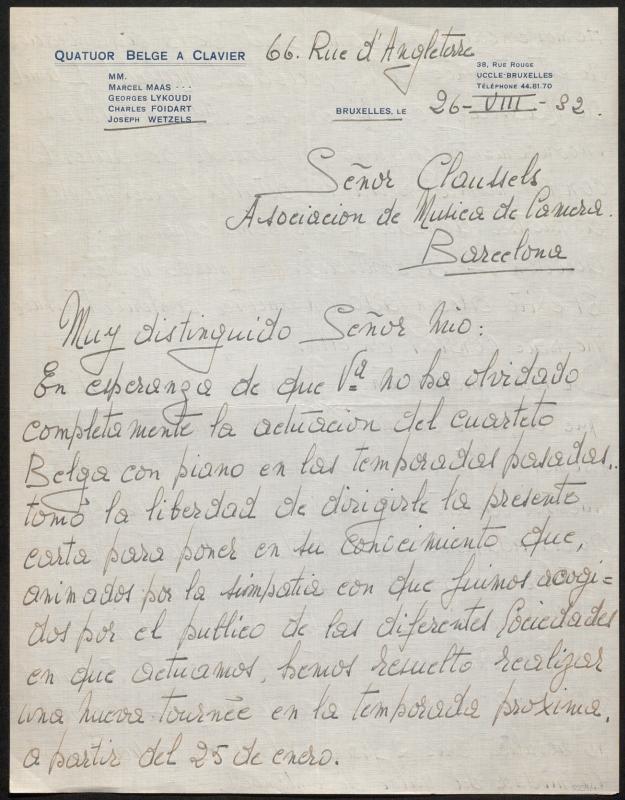 QUATUOR BELGE A CLAVIER
66. Rue d'Angleterre
MM.
MARCEL MAAS
GEORGES LYKOUDI
CHARLES FOIDART
JOSEPH WETZELS
38, RUE ROUGE
UCCLE-BRUXELLES
TÉLÉPHONE 44.81.70
BRUXELLES, LE 26-VIII-32.
Señor Claussels
Asociacion de Musica de Camera.
Barcelona
Muy distinguido Señor mio:
En esperanza de que Vd no ha olvidado
completamente la actuacion del cuarteto
Belga con piano en las temporadas pasadas,
tomo la libertad de dirigirle la presente
carta para poner en su conicimiento que,
animados por la simpatia con que fuimos acogi=
dos por el publico de las diferentes Sociedades
en que actuamos, hemos resuelto realizar
una nueva tournée en la temporada proxima,
a partir del 25 de enero.